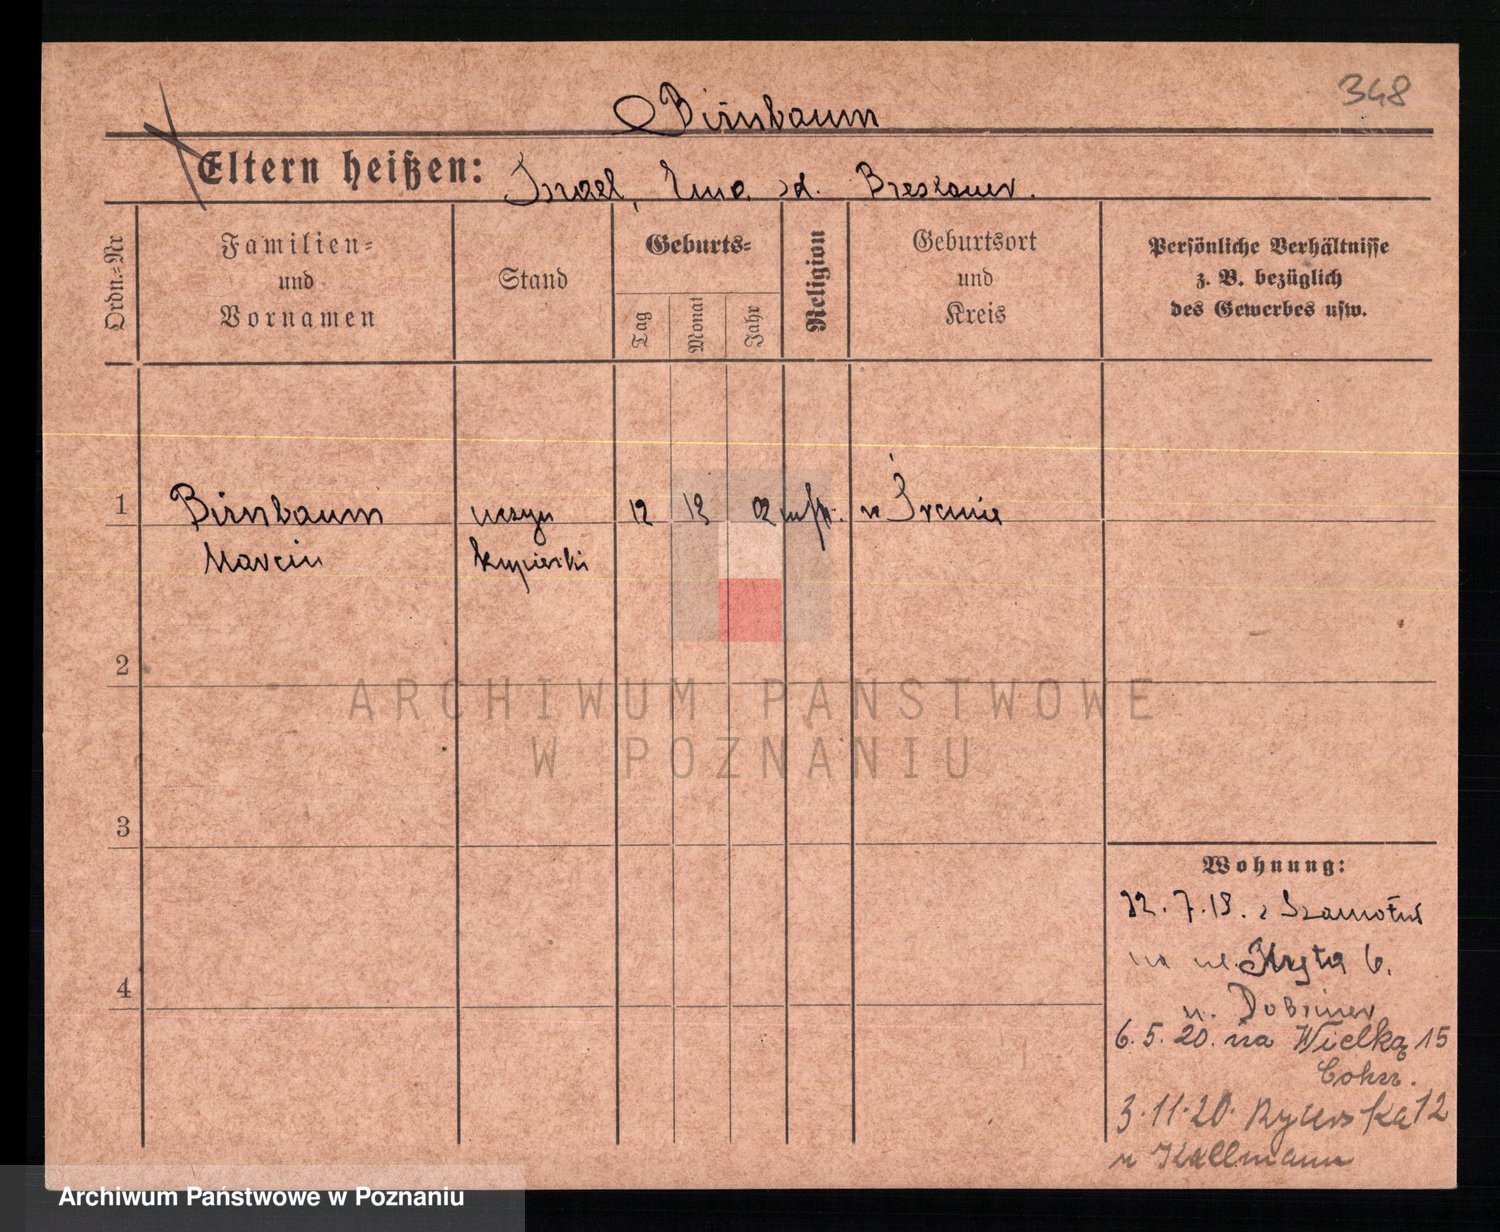 348
Birnbaum
Eltern heißen: Israel, Ema zd. Breslauer.
Ordn.=Nr
Familien=
und
Vornamen
Stand
Geburts=
Tag
Monat
Jahr
Religion
Geburtsort
und
Kreis
Persönliche Verhältnisse
z. B. bezüglich
des Gewerbes usw.
1 Birnbaum uczyń 12 02 w Śremie
Marcin kupiecki
2
ARCHIWUM PAŃSTWOWE
W POZNANIU
3
Wohnung:
22.7.19. z Szamotuł
na ul. 6.
4
6.5.20. na Wielką 15
Cohn.
3.11.20. Rycerska 12
u Kallmann
Archiwum Państwowe w Poznaniu